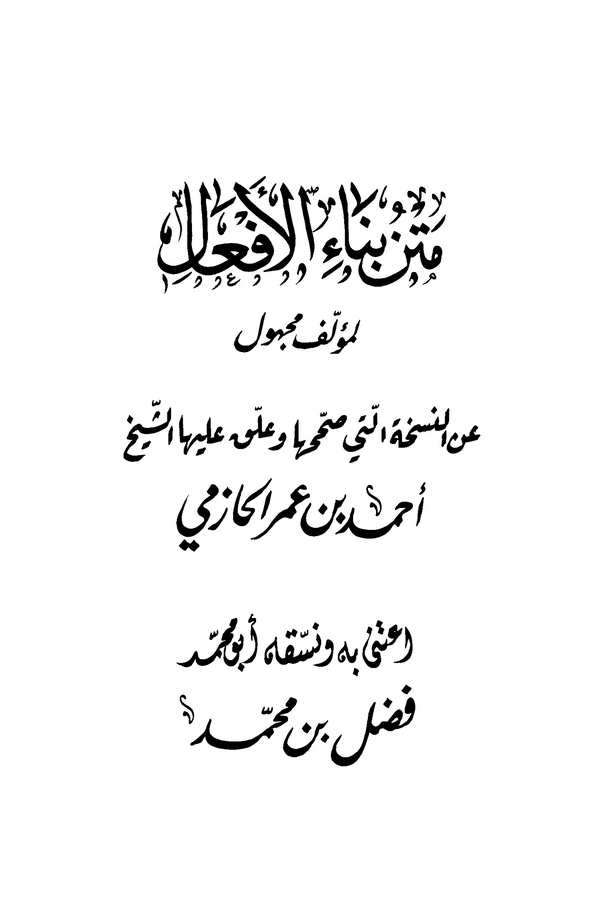 مَتْنُ بِنَاءِ الْأَفْعَالِ
لمؤلّف مجهول
عن النسخة الّتي صحّحها وعلّق عليها الشّيخ
أحمد بن عمر الحازمي
اعتنى به ونسّقه أبو محمّد
فضل بن محمّد